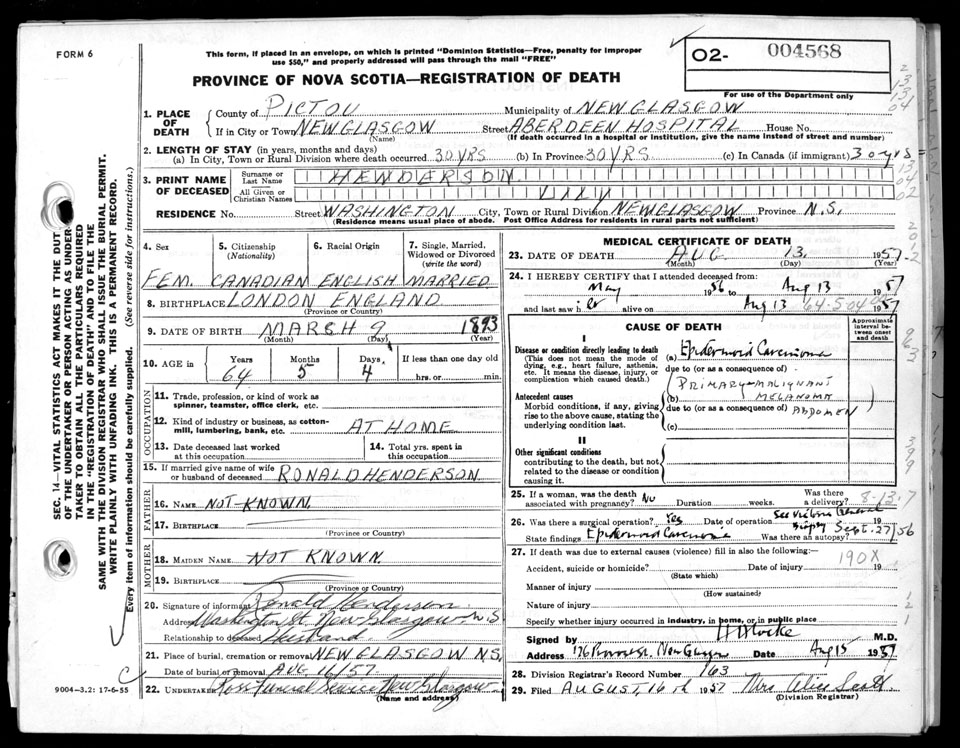 FORM 6
This form, if placed in an envelope, on which is printed "Dominion Statistics—Free, penalty for improper
use $50," and properly addressed will pass through the mail "FREE"
02- 004568
For use of the Department only
PROVINCE OF NOVA SCOTIA—REGISTRATION OF DEATH
SEC. 14—VITAL STATISTICS ACT MAKES IT THE DUTY
OF THE UNDERTAKER OR PERSON ACTING AS UNDER-
TAKER TO OBTAIN ALL THE PARTICULARS REQUIRED
IN THE "REGISTRATION OF DEATH" AND TO FILE THE
SAME WITH THE DIVISION REGISTRAR WHO SHALL ISSUE THE BURIAL PERMIT.
WRITE PLAINLY WITH UNFADING INK. THIS IS A PERMANENT RECORD.
Every item of information should be carefully supplied. (See reverse side for instructions.)
1. PLACE OF DEATH
County of PICTOU Municipality of NEW GLASGOW
If in City or Town NEW GLASGOW Street ABERDEEN HOSPITAL House No.
(Name) (If death occurred in a hospital or institution, give the name instead of street and number)
2. LENGTH OF STAY (in years, months and days)
(a) In City, Town or Rural Division where death occurred 30 YRS (b) In Province 30 YRS (c) In Canada (if immigrant) 30 yrs
3. PRINT NAME OF DECEASED
Surname or Last Name HENDERSON
All Given or Christian Names LILY
RESIDENCE No. Street WASHINGTON City, Town or Rural Division NEW GLASGOW Province N.S.
(Residence means usual place of abode. Post Office Address for residents in rural parts not sufficient)
4. Sex 5. Citizenship (Nationality) 6. Racial Origin 7. Single, Married, Widowed or Divorced (write the word)
FEM. CANADIAN ENGLISH MARRIED
8. BIRTHPLACE LONDON ENGLAND
(Province or Country)
9. DATE OF BIRTH MARCH 9 1893
(Month) (Day) (Year)
10. AGE in Years Months Days If less than one day old
64 5 4 hrs. or min.
OCCUPATION
11. Trade, profession, or kind of work as
spinner, teamster, office clerk, etc.
12. Kind of industry or business, as cotton-
mill, lumbering, bank, etc. AT HOME
13. Date deceased last worked at this occupation
14. Total yrs. spent in this occupation
15. If married give name of wife
or husband of deceased RONALD HENDERSON
FATHER
16. NAME NOT KNOWN
17. BIRTHPLACE
(Province or Country)
MOTHER
18. MAIDEN NAME NOT KNOWN
19. BIRTHPLACE
(Province or Country)
20. Signature of informant Ronald Henderson
Address Washington St. New Glasgow N.S.
Relationship to deceased Husband
21. Place of burial, cremation or removal NEW GLASGOW N.S.
Date of burial or removal AUG 16/57
22. UNDERTAKER Ross Funeral Service New Glasgow
(Name and address)
9004—3.2: 17-6-55
MEDICAL CERTIFICATE OF DEATH
23. DATE OF DEATH AUG 13 1957
(Month) (Day) (Year)
24. I HEREBY CERTIFY that I attended deceased from:
May 1956 to Aug 13 1957
and last saw her alive on Aug 13 1957
CAUSE OF DEATH
Approximate interval between onset and death
I
Disease or condition directly leading to death
(This does not mean the mode of
dying, e.g., heart failure, asthenia,
etc. It means the disease, injury, or
complication which caused death.)
(a) Epidermoid Carcinoma
due to (or as a consequence of)
Antecedent causes
Morbid conditions, if any, giving
rise to the above cause, stating the
underlying condition last.
(b) PRIMARY—MALIGNANT MELANOMA
due to (or as a consequence of) ABDOMEN
(c)
II
Other significant conditions
contributing to the death, but not
related to the disease or condition
causing it.
25. If a woman, was the death
associated with pregnancy? No Duration weeks. Was there a delivery? 8-13-7
26. Was there a surgical operation? Yes Date of operation See Victoria General 19
State findings Epidermoid Carcinoma Biopsy Sept. 27/56
Was there an autopsy?
27. If death was due to external causes (violence) fill in also the following:—
Accident, suicide or homicide? Date of injury 19
(State which)
190X
Manner of injury
(How sustained)
Nature of injury
Specify whether injury occurred in industry, in home, or in public place
Signed by M.D.
Address New Glasgow Date Aug 15 1957
28. Division Registrar's Record Number 163
29. Filed AUGUST 16th 1957 Mrs
(Division Registrar)